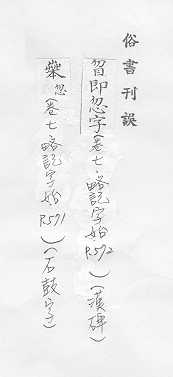 俗書刊誤
曶即忽字(卷七.略記字始P.592)(漢碑)
忽(卷七.略記字始P.591)(石鼓文)